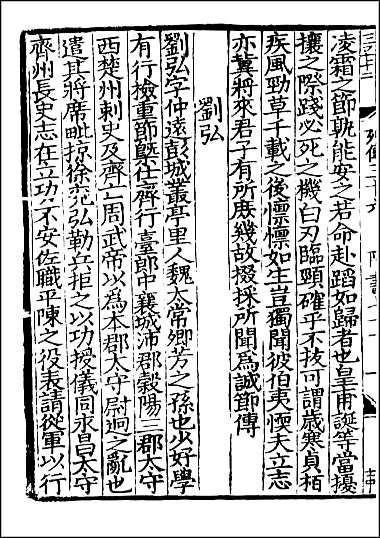 凌霜之節孰能安之若命赴蹈如歸者也皇甫誕等當擾
攘之際踐必死之機白刃臨頸確乎不拔可謂歲寒貞柏
疾風勁草千載之後懍懍如生豈獨聞彼伯夷懦夫立志
亦冀將來君子有所庶幾故掇採所聞為誠節傳
劉弘
劉弘字仲遠彭城叢亭里人魏太常卿芳之孫也少好學
有行檢重節槩仕齊行臺郎中襄城沛郡穀陽三郡太守
西楚州刺史及齊亡周武帝以為本郡太守尉迥之亂也
遣其將席毗掠徐兗弘勒兵拒之以功授儀同永昌太守
齊州長史志在立功不安佐職平陳之役表請從軍以行